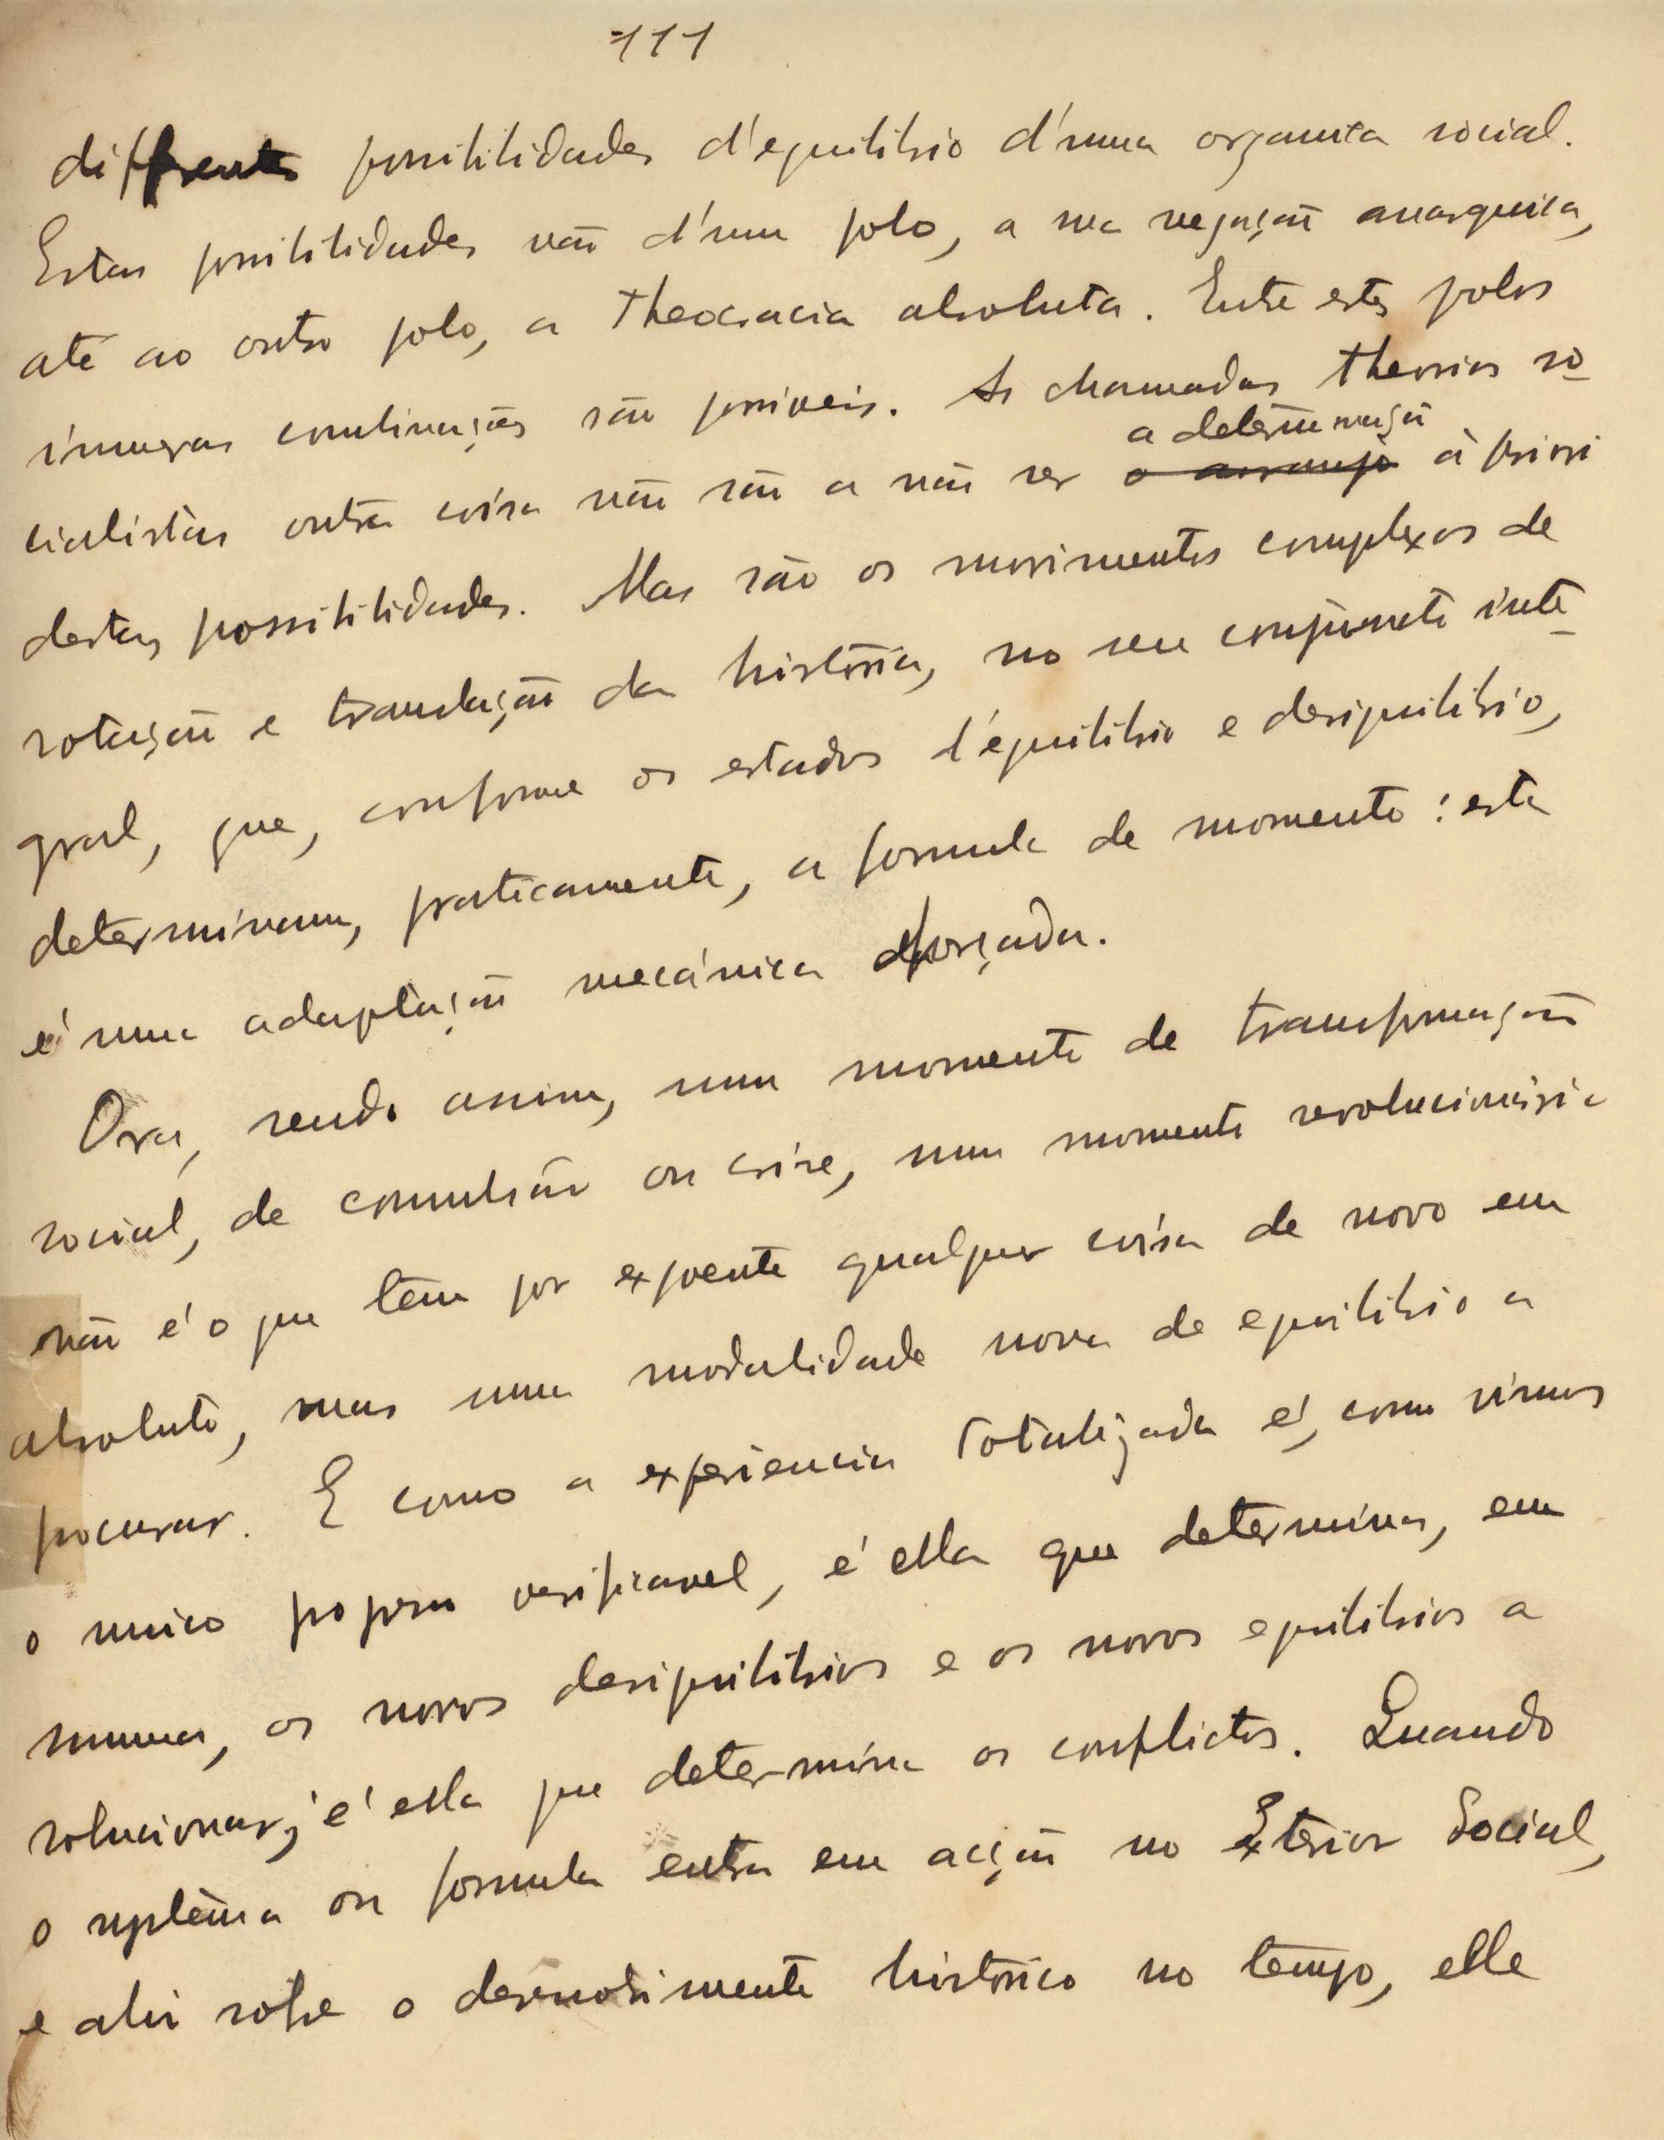 111
differentes possibilidades d'equilibrio d'uma organica social.
Estas possibilidades vão d'um polo, a sua negação anarquica,
até ao outro polo, a theocracia absoluta. Entre estes polos
ínumeras combinações são possiveis. As chamadas theorias so-
a determinação
cialistas outra coisa não são a não ser o arranjo à priori
destas possibilidades. Mas são os movimentos complexos de
rotação e translação da história, no seu conjuncto inte-
gral, que, conforme os estados d'equilibrio e desiquilibrio,
determinam, praticamente, a formula de momento: esta
é uma adaptação mecánica forçada.
Ora, sendo assim, num momento de transformação
social, de convulsão ou crise, num momento revolucionário
não é o que têm por expoente qualquer coisa de novo em
absoluto, mas uma modalidade nova de equilibrio a
procurar. E como a experiencia totalizada é, como vimos
o unico processo verificavel, é ella que determina, em
summa, os novos desiquilibrios e os novos equilibrios a
solucionar; é ella que determina os conflictos. Quando
o systêma ou formula entra em acção no Exterior Social,
e ahi sofre o desenvolvimento histórico no tempo, elle